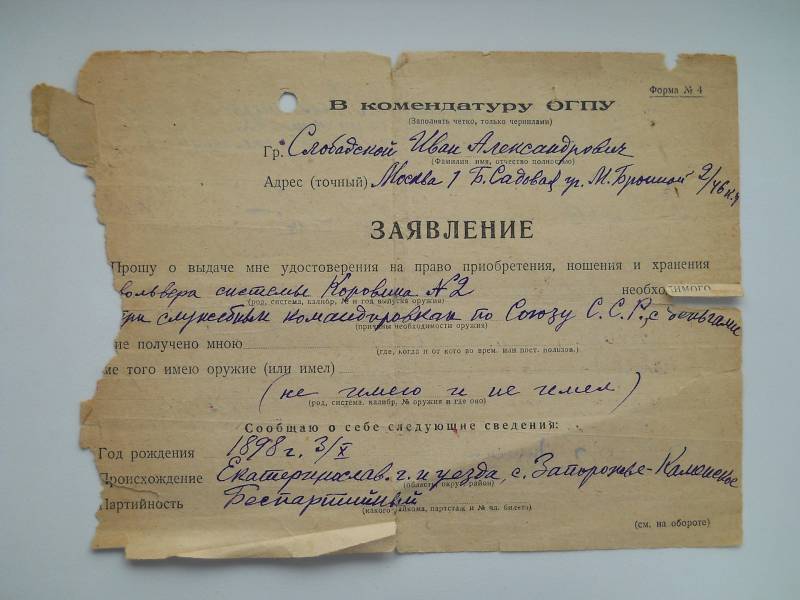 Форма № 4
В комендатуру ОГПУ
(Заполнять четко, только чернилами)
Гр. Слободской Иван Александрович
(Фамилия имя, отчество полностью)
Адрес (точный) Москва 1 Б. Садовая уг. М. Бронной 2/46 к. 4
ЗАЯВЛЕНИЕ
Прошу о выдаче мне удостоверения на право приобретения, ношения и хранения
вольвера системы Коровина №2 необходимого
(род, система, калибр, № и год выпуска оружия)
при служебных командировках по Союзу С.С.Р., с деньгами
(причины необходимости оружия)
ие получено мною
(где, когда и от кого во врем. или пост. пользов.)
ме того имею оружие (или имел)
(не имею и не имел)
(род, система, калибр, № оружия и где оно)
Сообщаю о себе следующие сведения:
Год рождения 1898 г. 3/X
Происхождение Екатеринослав. г. и уезда, с. Запорожье-Каменское
(область, округ, район)
Партийность Беспартийный
(какого райкома, партстаж и № чл. билета)
(см. на обороте)